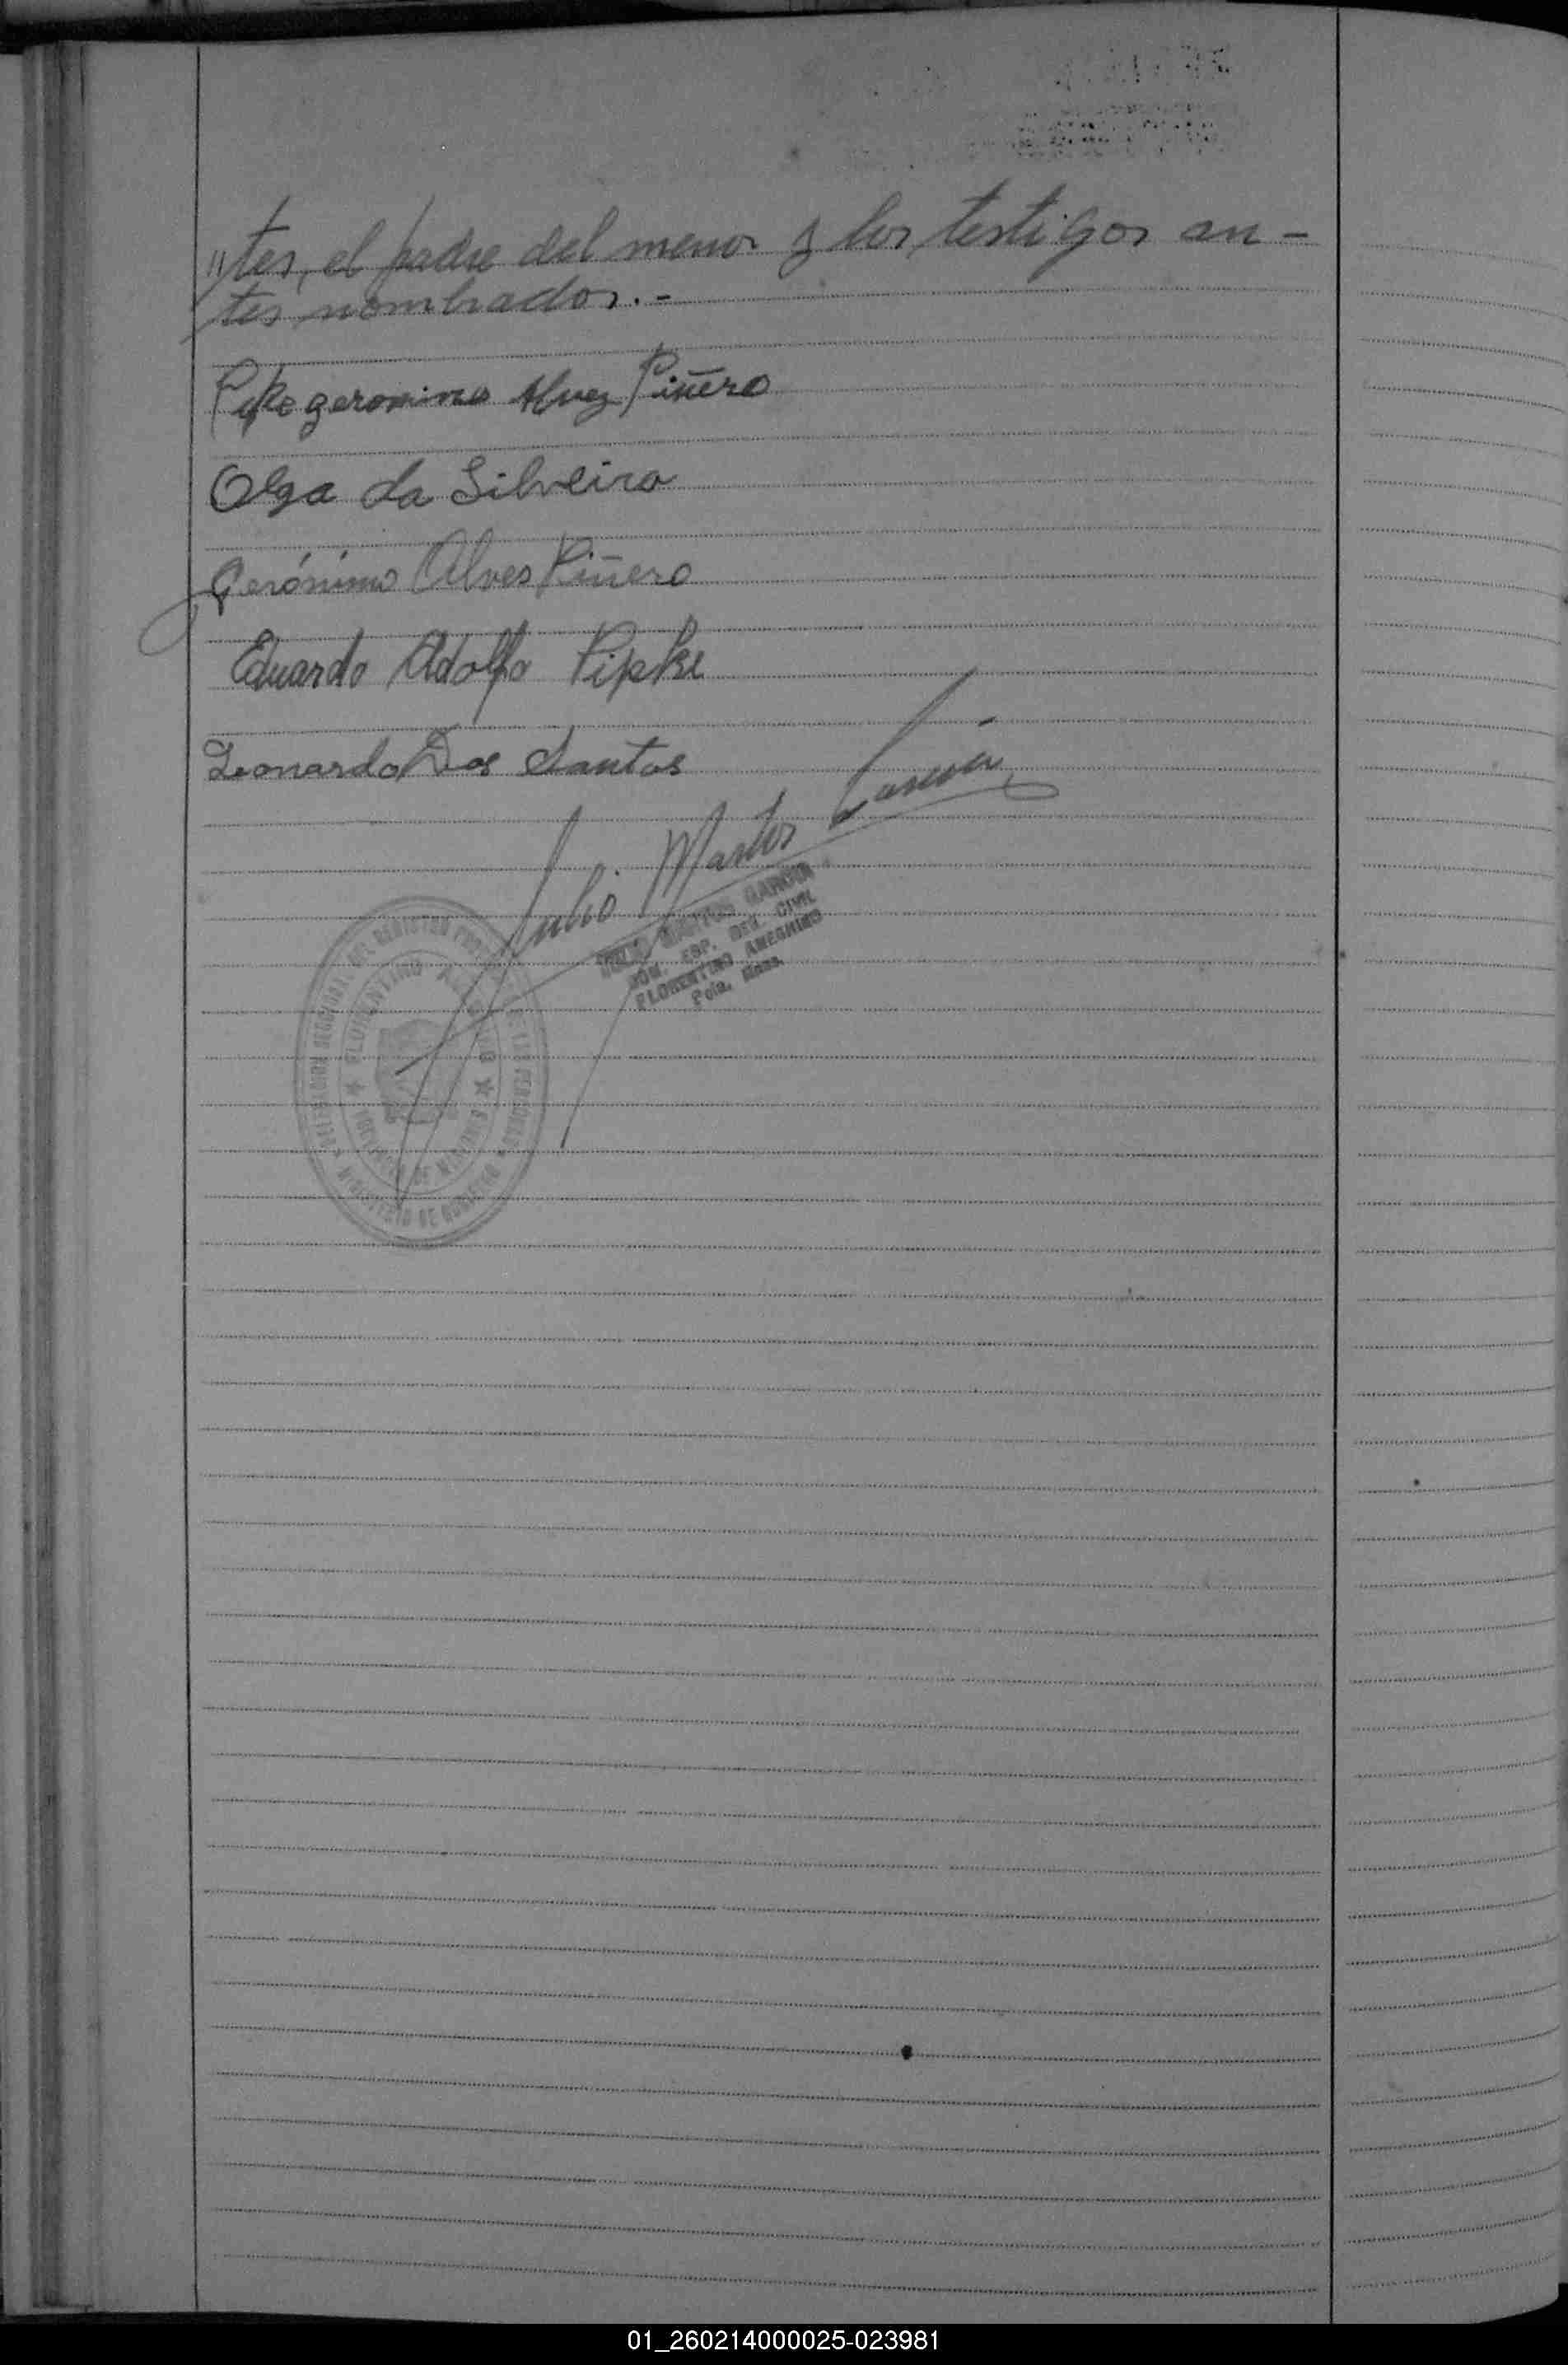 "tes, el padre del menor y los testigos an-
tes nombrados.-
geronimo Alvez Piñero
Olga da Silveira
Gerónimo Alves Piñero
Eduardo Adolfo Pipke
Leonardo Dos Santos
Julio Martos García
JULIO MARTOS GARCIA
ESP. REG. CIVIL
FLORENTINO AMEGHINO
Pcia. Mnes.
DELEGACION SECCIONAL DEL REGISTRO PROVINCIAL DE LAS PERSONAS
FLORENTINO AMEGHINO
PROVINCIA DE MISIONES
MINISTERIO DE GOBIERNO
01_260214000025-023981